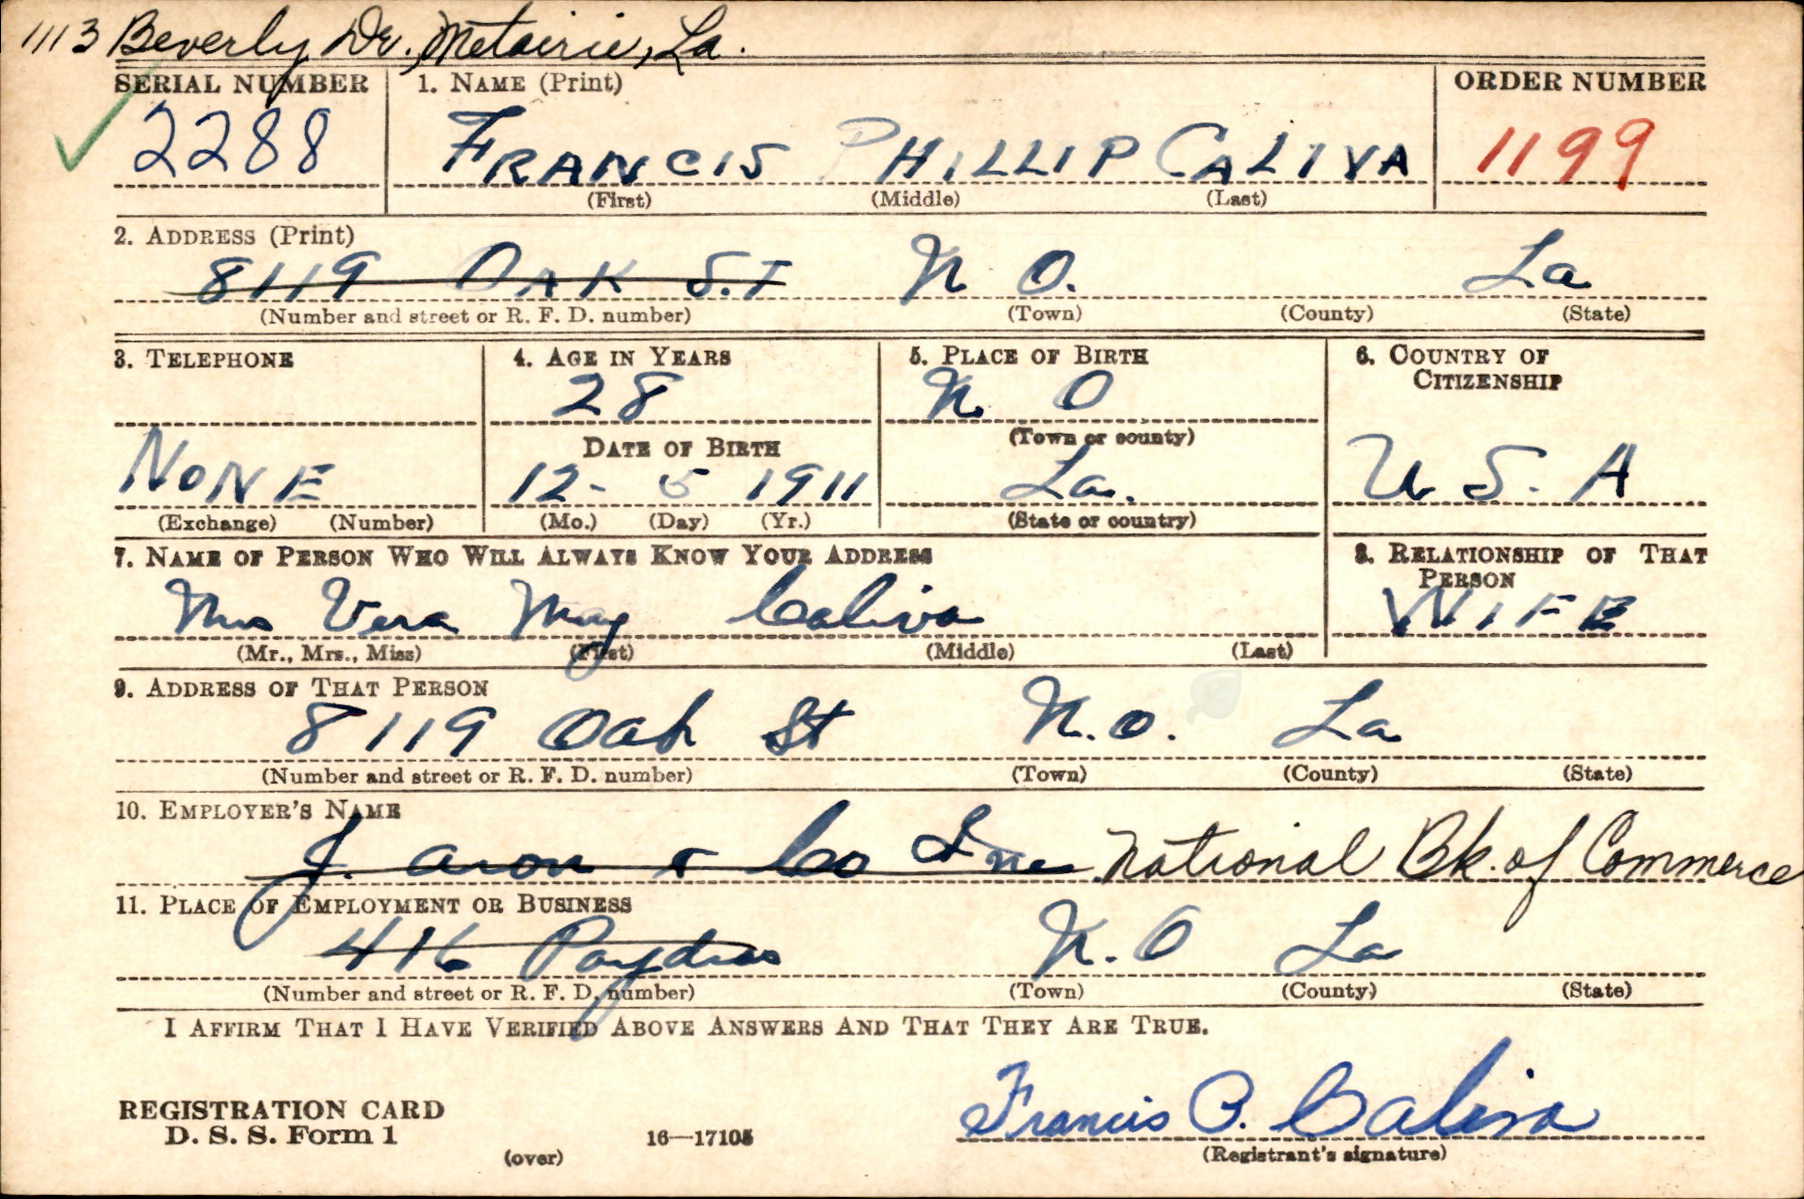 1113 Beverly Dr., Metairie, La.
SERIAL NUMBER 1. NAME (Print) ORDER NUMBER
2288 FRANCIS PHILLIP CALIVA 1199
(First) (Middle) (Last)
2. ADDRESS (Print)
8119 OAK S.T N O. La
(Number and street or R. F. D. number) (Town) (County) (State)
3. TELEPHONE 4. AGE IN YEARS 5. PLACE OF BIRTH 6. COUNTRY OF
CITIZENSHIP
28 N. O
DATE OF BIRTH (Town or county)
NONE 12- 5 1911 La. U S. A
(Exchange) (Number) (Mo.) (Day) (Yr.) (State or country)
7. NAME OF PERSON WHO WILL ALWAYS KNOW YOUR ADDRESS 8. RELATIONSHIP OF THAT
PERSON
Mrs Vera May Caliva WIFE
(Mr., Mrs., Miss) (First) (Middle) (Last)
9. ADDRESS OF THAT PERSON
8119 Oak St N.O. La
(Number and street or R. F. D. number) (Town) (County) (State)
10. EMPLOYER'S NAME
J. Aron & Co Inc National Bk. of Commerce
11. PLACE OF EMPLOYMENT OR BUSINESS
416 Poydras N.O La
(Number and street or R. F. D. number) (Town) (County) (State)
I AFFIRM THAT I HAVE VERIFIED ABOVE ANSWERS AND THAT THEY ARE TRUE.
REGISTRATION CARD
D. S. S. Form 1 16—17105 Francis P. Caliva
(over) (Registrant's signature)